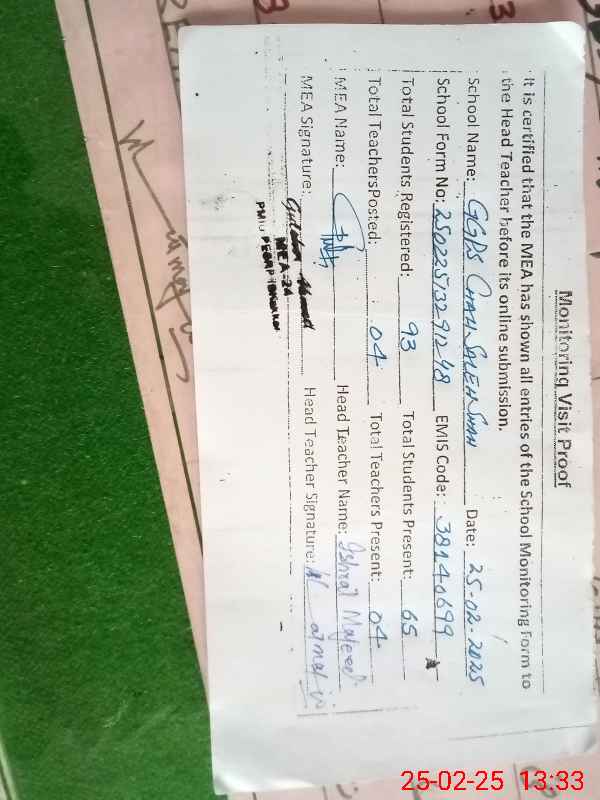 Monitoring Visit Proof
It is certified that the MEA has shown all entries of the School Monitoring Form to
the Head Teacher before its online submission.
School Name: GGPS CHAH SALEH SHAH Date: 25-02-2025
School Form No: 25022513291248 EMIS Code: 38140699
Total Students Registered: 93 Total Students Present: 65
Total TeachersPosted: 04 Total Teachers Present: 04
MEA Name: Head Teacher Name: Ishrat Majeed
MEA Signature: Head Teacher Signature:
MEA-24
25-02-25 13:33